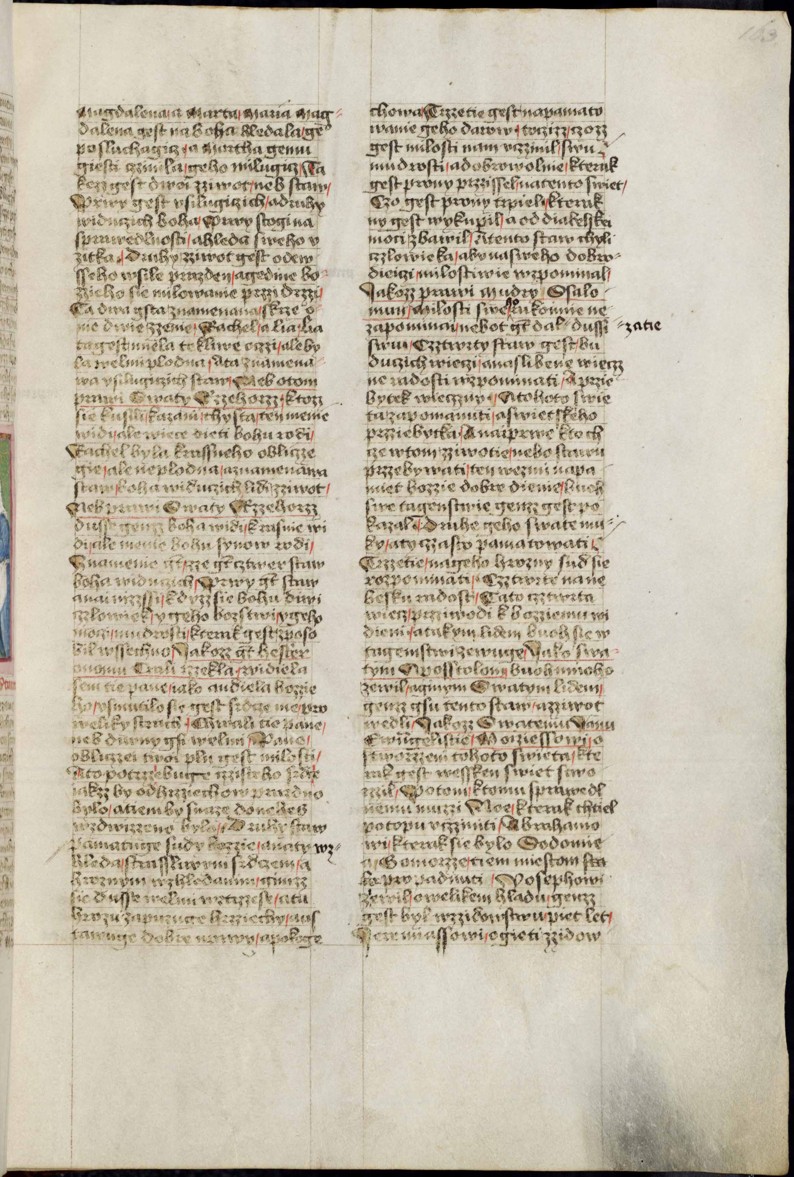 163
Magdalena a Marta/ Maria Mag-
dalena gest na boha hledala/ ge°
posluchagicz/ a Martha gemu
giesti czinila/ geho milugicz/ Ta
kezz gest dwoi zziwot/ neb staw/
Prwy gest vsilugiczich/ a druhy
widuczich boha/ Prwy stogi na
sprawedlnosti/ a hleda sweho v
zitka/ Druhy zziwot gest odew
sseho vsile prazden/ a gedine bo-
zzieho sie milowanie przzi drzzi/
Ta dwa gsta znamenana/ skrze o-
nie dwie zzenie/ Rachel/ a lia/ lia
ta gest miela tekliwe oczi/ ale by
la welmi plodna/ A ta znamena-
wa vsilugiczich staw/ Neb o tom
prawi Swaty Rzzehorzz/ ktozz
sie k vsili kazani chysta/ ten menie
widi/ ale wiece dieti bohu rodi/
Rachel byla krassneho oblicze
gie/ ale neplodna/ a znamenawa
staw/ boha widuczich lidi zziwot/
Neb prawi Swaty Rzzehorzz
dusse genzz boha widi/ krasnie wi
di/ ale menie bohu synow rodi/
Znamenie gt/ zze gt cztwer staw
boha widuczich/ Prwy gt staw
a nai wyzssi/ kdyzz sie bohu diwi
czlowiek/ v geho bozstwi/ v geho
moczi/ mudrosti/ kterak gest zposo
bil wssechno/ Jakozz gt hester
Asswerowi Krali rzzekla/ widiela
sem tie pane/ iako andiela bozzie
ho/ v smutilo sie gest srdcze me/ pro
weliky strach/ Chwali tie pane/
neb diwny gsi welmi/ Pane/
obliczei twoi pln gest milosti/
A to potrzzebuge czisteho srdcze
iakzz by od hrziechow prazdno
bylo/ a tiem by snaze do nebes
wzdwizzeno bylo/ Druhy staw
pamatuge sudy bozzie/ a na ty wz-
hleda/ strasslwym srdczem/ a
hroznym wzhledanim/ gimzz
sie dusse welmi vztrzzese/ a ta
hroza zapuzuge hrzziechy/ a us
tawuge dobre mrawy/ a pokoge
chowa/ Trzzetie gest na pamato
wanie geho darow/ toczizz/ czozz
gest milosti nam vczinil/ swu
mudrosti/ a dobrowolnie/ kterak
gest prwy przzissel na tento swiet/
Czo gest prwy trpiel/ kterak
ny gest wykupil/ a od diabelske
moczi zbawil/ A tento staw chyli
czlowieka/ aby na sweho dobro-
dieiczi milostiwie wzpominal/
Jakozz prawi Mudry/ Salo-
mun/ Milosti swe rukoimie ne
zapominai/ nebot gt dal/ dussi -zatie
swu/ Cztwrty staw gest/ bu
duczich wieczi/ a na slibene wiecz
ne radosti wzpominati/ A przie
bytek wieczny/ A tohoto swie
ta zapomanuti/ a swietskeho
przziebytka/ A naiprwe kto ch
cze w tom zziwotie/ nebo stawu
przzebywati/ ten wezmi na pa-
miet bozzie dobre dienie/ buoh
swe tagemstwie genzz gest po
kazal/ Druhe geho swate mu-
ky/ a ty czzasto pamatowati/
Trzzetie/ na geho hrozny sud sie
rozpominati/ Cztwrte na ne
besku radost/ Tato cztwrta
wiecz/ przziwodi k bozziemu wi
dieni/ a takym lidem buoh sie w
tagemstwi zewuge/ Jako swa-
tym Aposstolom/ buoh mnoho
zewil/ a ginym Swatym lidem/
genzz gsu tento staw/ a zziwot
wedli/ Jakozz Swatemu Janu
Ewangelistie/ Moiziessowi/ o
stworzzeni tohoto swieta/ kte
rak gest wessken swiet stwo
rzzil/ Potom/ k tomu sprawedl
nemu muzzi Noe/ kterak chtiel
potopu vcziniti/ Abrahamo
wi/ kterak sie bylo Sodomie
a Gomorzze/ tiem miestom sta
lo propadnuti/ Josephowi
zewil/ o welikem hladu/ genzz
gest byl w zzidowstwu piet let/
Jeremiassowi/ o gieti zzidow